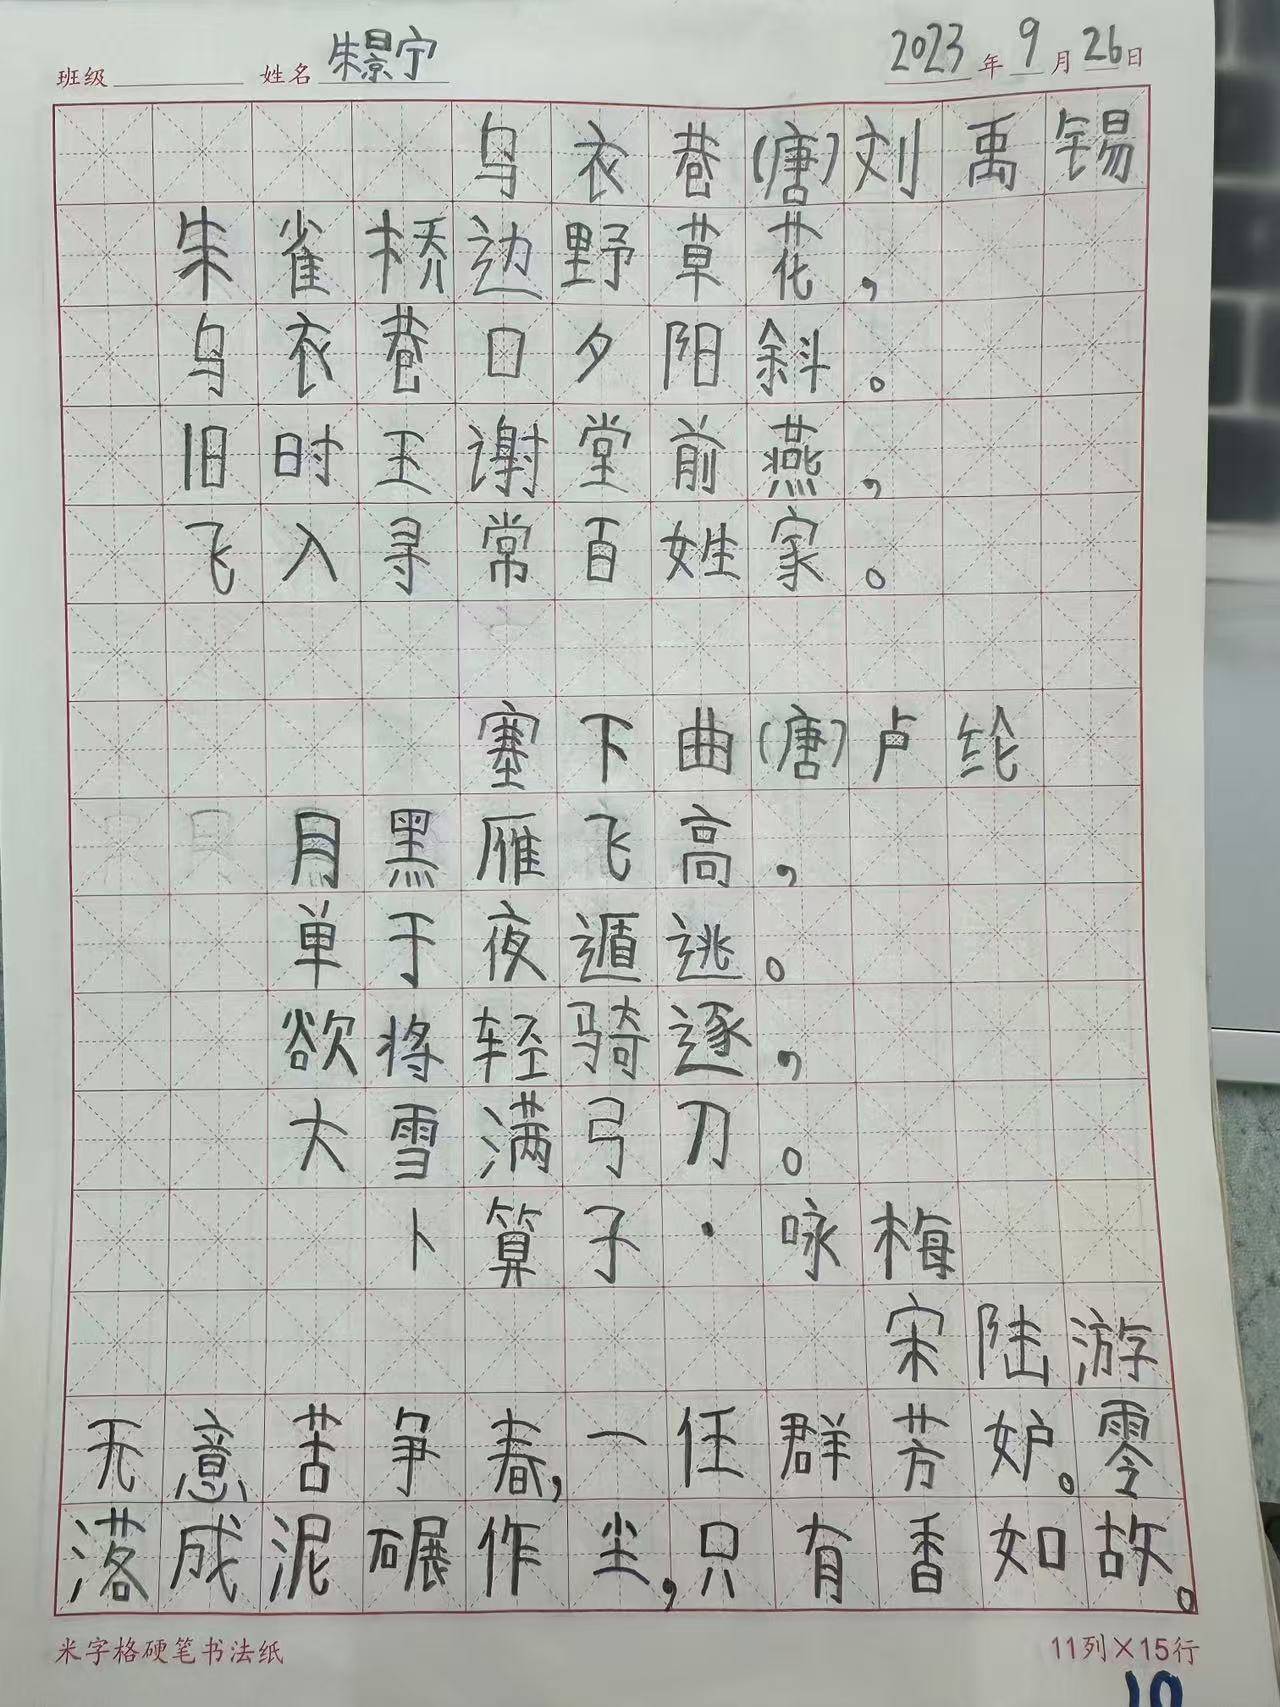 班级 姓名 朱景宁 2023年9月26日
乌衣巷(唐)刘禹锡
朱雀桥边野草花，
乌衣巷口夕阳斜。
旧时王谢堂前燕，
飞入寻常百姓家。
塞下曲(唐)卢纶
月黑雁飞高，
单于夜遁逃。
欲将轻骑逐，
大雪满弓刀。
卜算子·咏梅
宋陆游
无意苦争春,一任群芳妒。零
落成泥碾作尘,只有香如故。
米字格硬笔书法纸 11列×15行